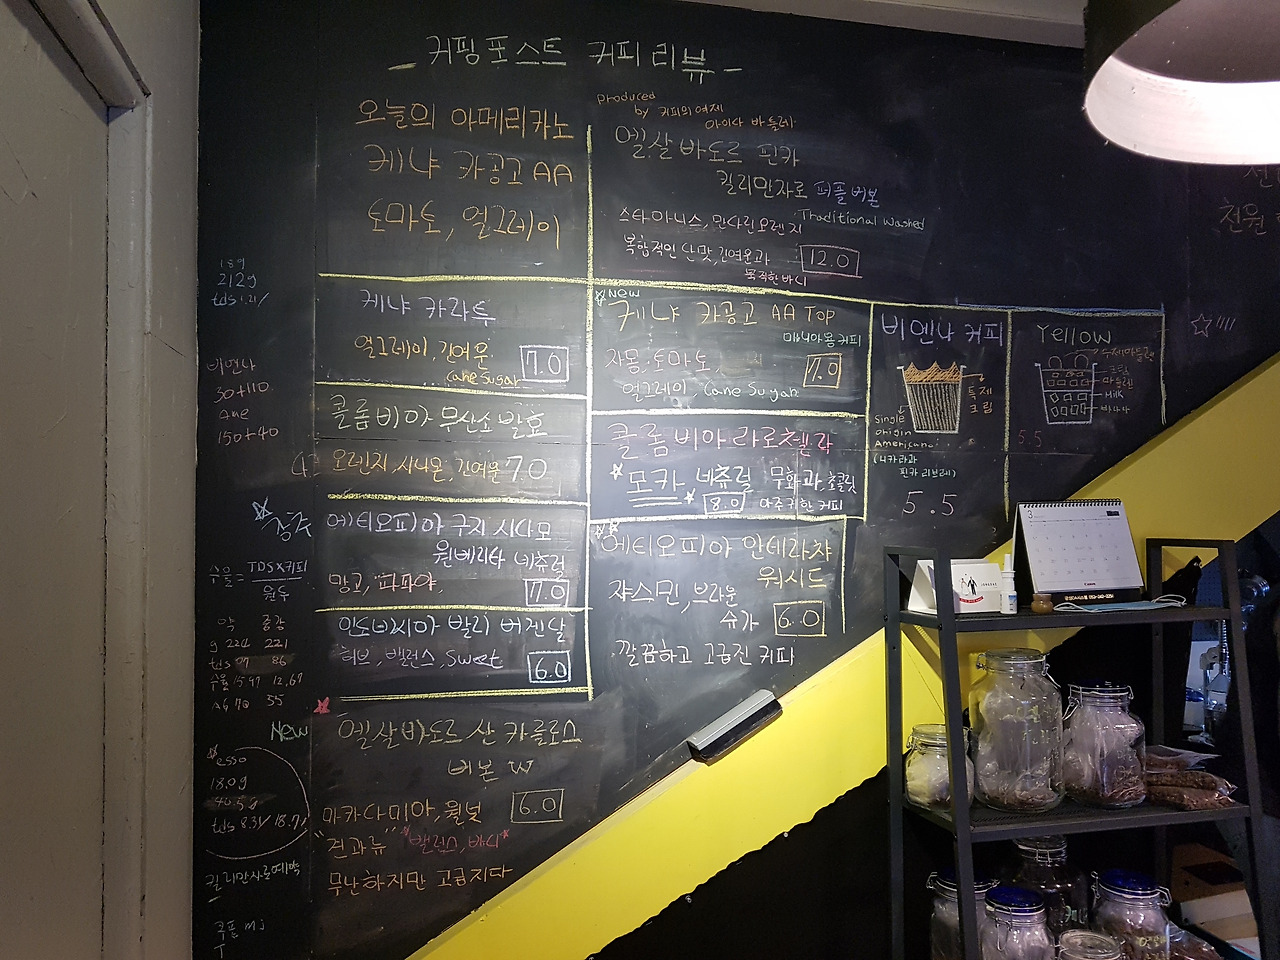 커핑포스트 커피 리뷰
오늘의 아메리카노
케냐 카공고 AA
토마토, 얼그레이
produced
by 커피의 여제
아이다 바틀레
엘살바도르 핀카
킬리만자로 퍼플버본
Traditional Washed
스타아니스, 만다린오렌지
복합적인 단맛, 긴여운과
묵직한바디
12.0
케냐 카라투
얼그레이, 긴여운
Cane Sugar
7.0
New
케냐 카공고 AA TOP
매니아용 커피
자몽, 토마토,
얼그레이, Cane Sugar
7.0
비엔나 커피
특제
크림
Single
origin
Americano
(니카라과
핀카 리브레)
5.5
Yellow
크림
마들렌
Milk
바나나
5.5
콜롬비아 무산소 발효
오렌지, 시나몬, 긴여운 7.0
콜롬비아 라로첼라
모카 네츄럴 무화과, 초콜릿
8.0 아주귀한 커피
에티오피아 구지 시다모
네츄럴
망고, 파파야,
에티오피아 안테라챠
워시드
쟈스민, 브라운
슈가 6.0
깔끔하고 고급진 커피
인도네시아 발리 버겐달
허브, 밸런스, Sweet
6.0
New
엘살바도르 산 카를로스
버본 W
마카다미아, 월넛 6.0
"견과류" 밸런스, 바디
무난하지만 고급지다
18g
212g
tds 1.21/
비엔나
30+110
Ame
150+40
수율 = TDS×커피
원두
약 중강
g 224 221
esso
18.0g
40.5g
tds 8.31/ 18.7/
킬리만자로예약
쿠폰 mj
천원
3
Canon